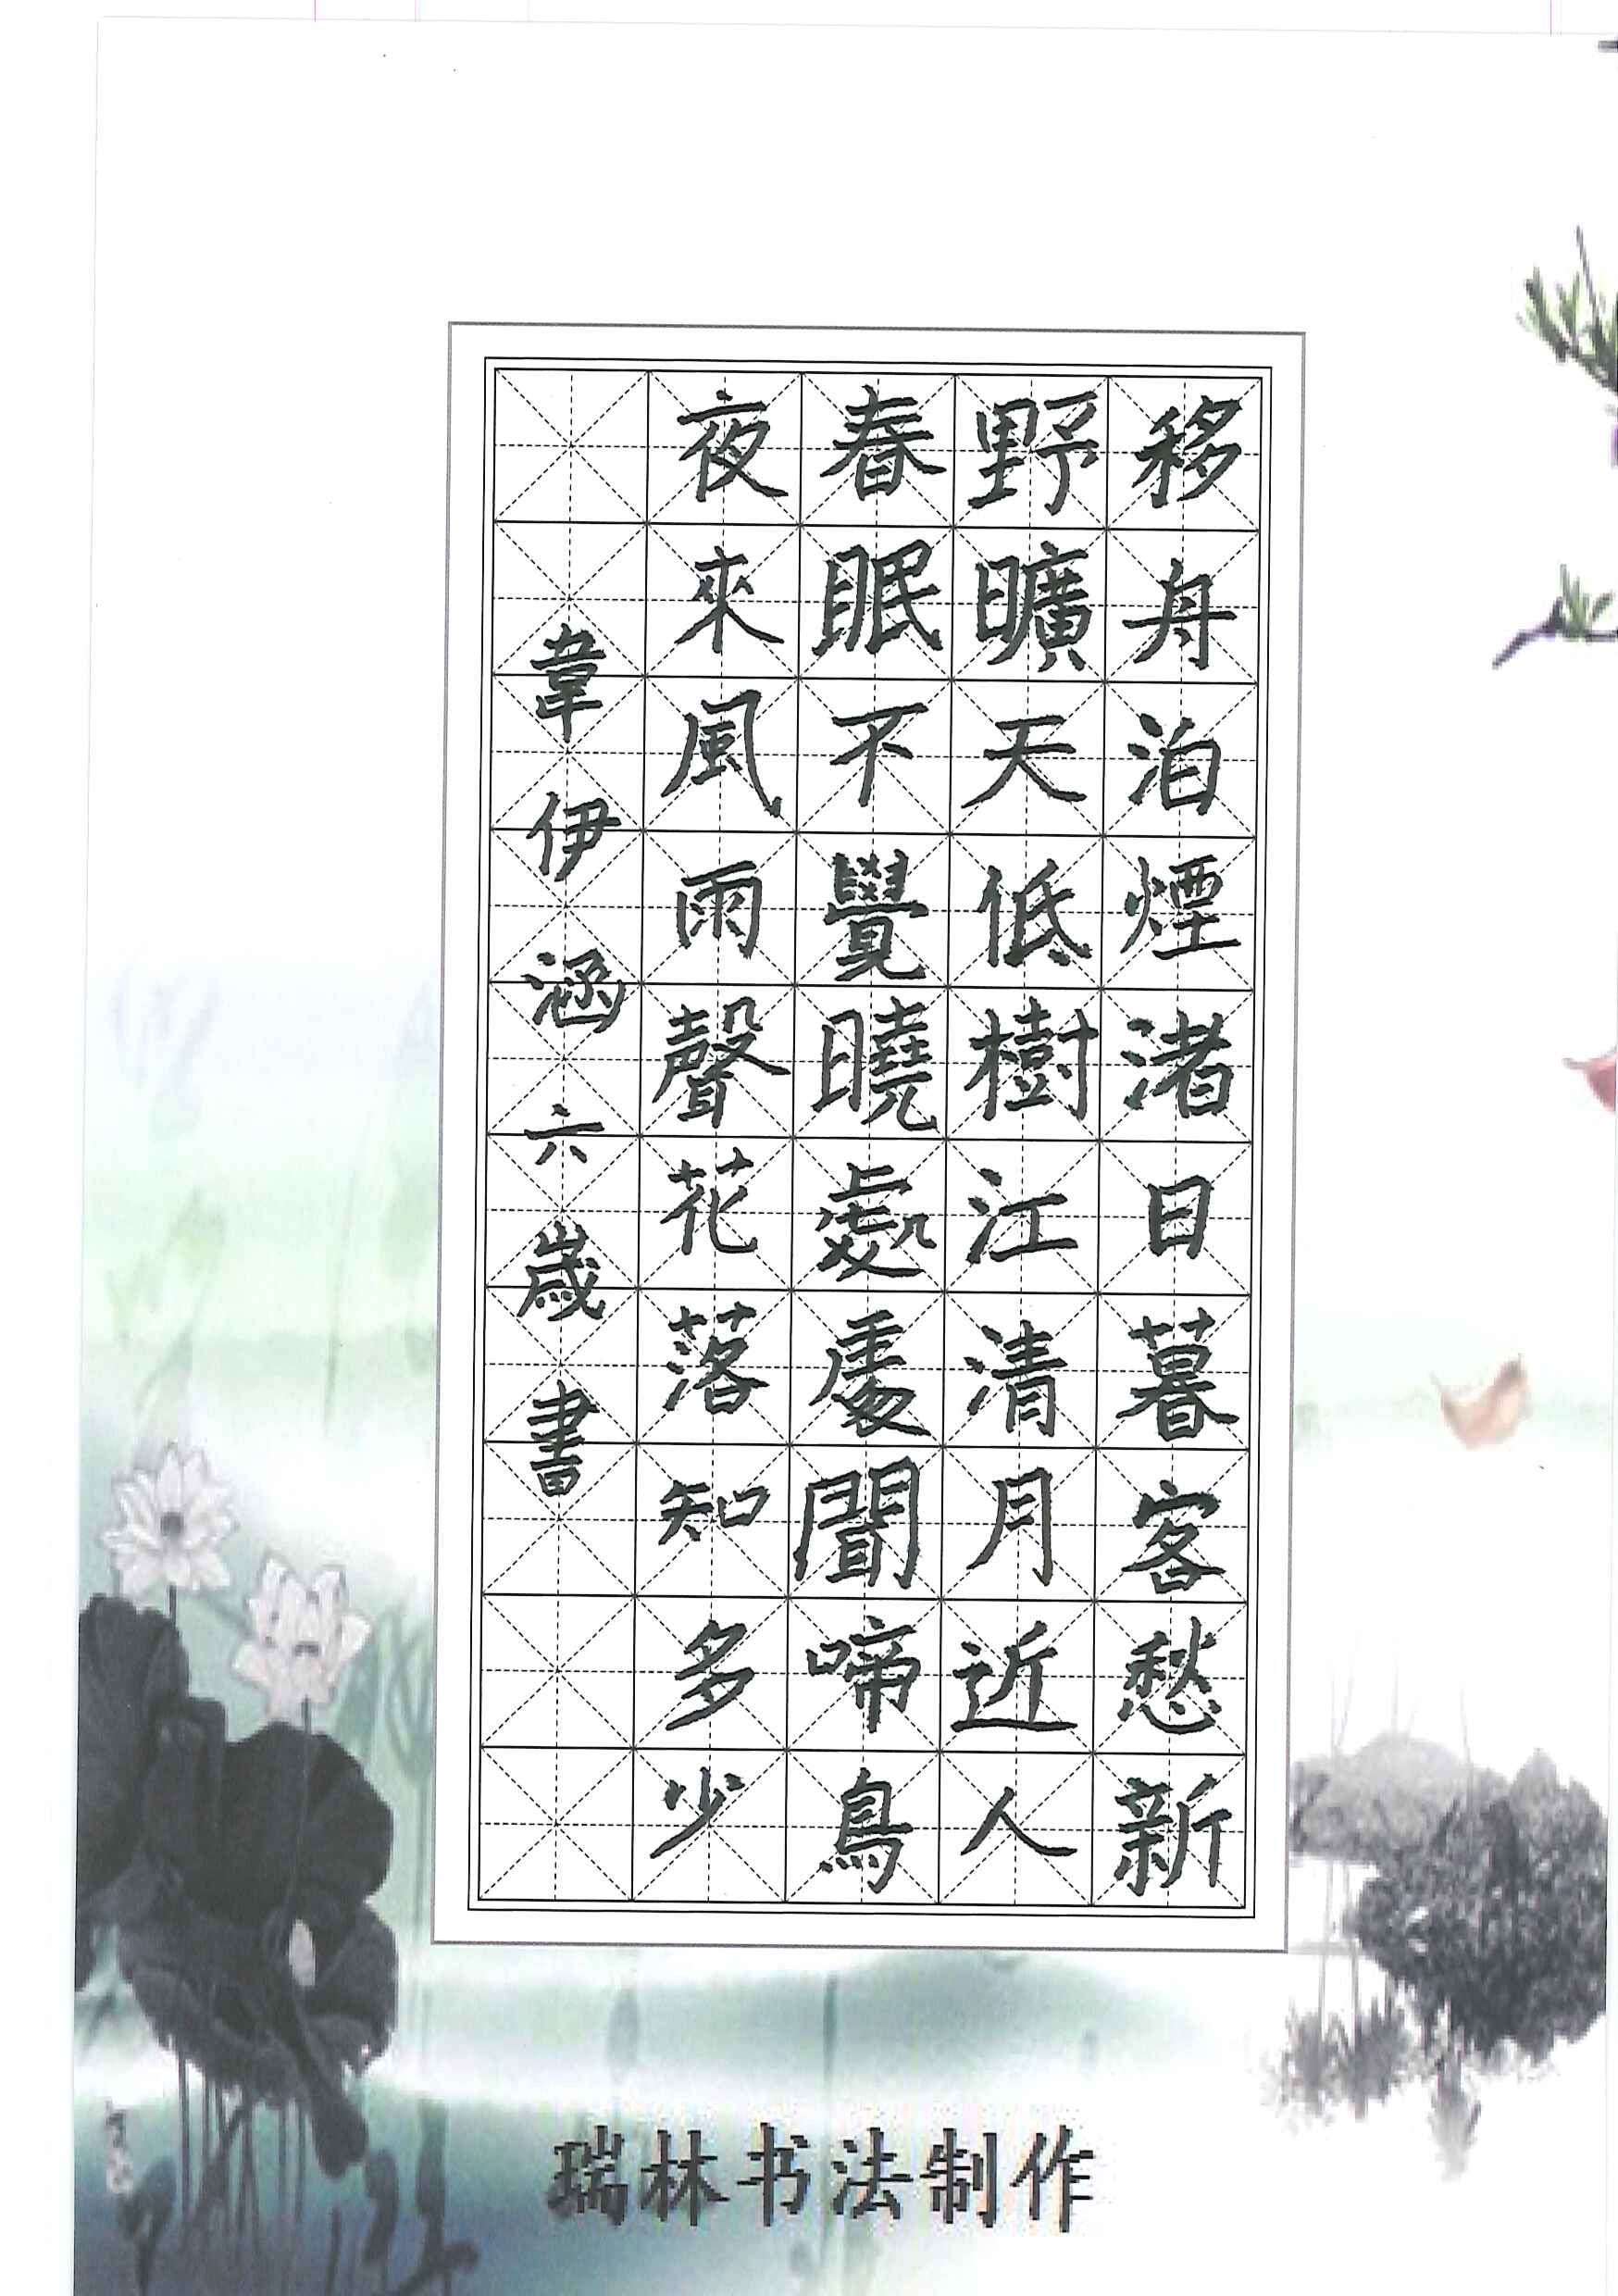 移舟泊煙渚日暮客愁新
野曠天低樹江清月近人
春眠不覺曉處處聞啼鳥
夜來風雨聲花落知多少
韋伊涵六歲書
瑞林书法制作